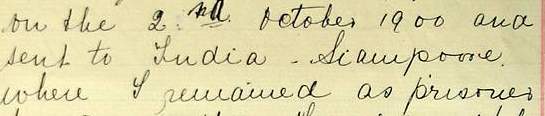 on the 2nd October 1900 and
sent to India - Siampoore.
where I remained as prisoner